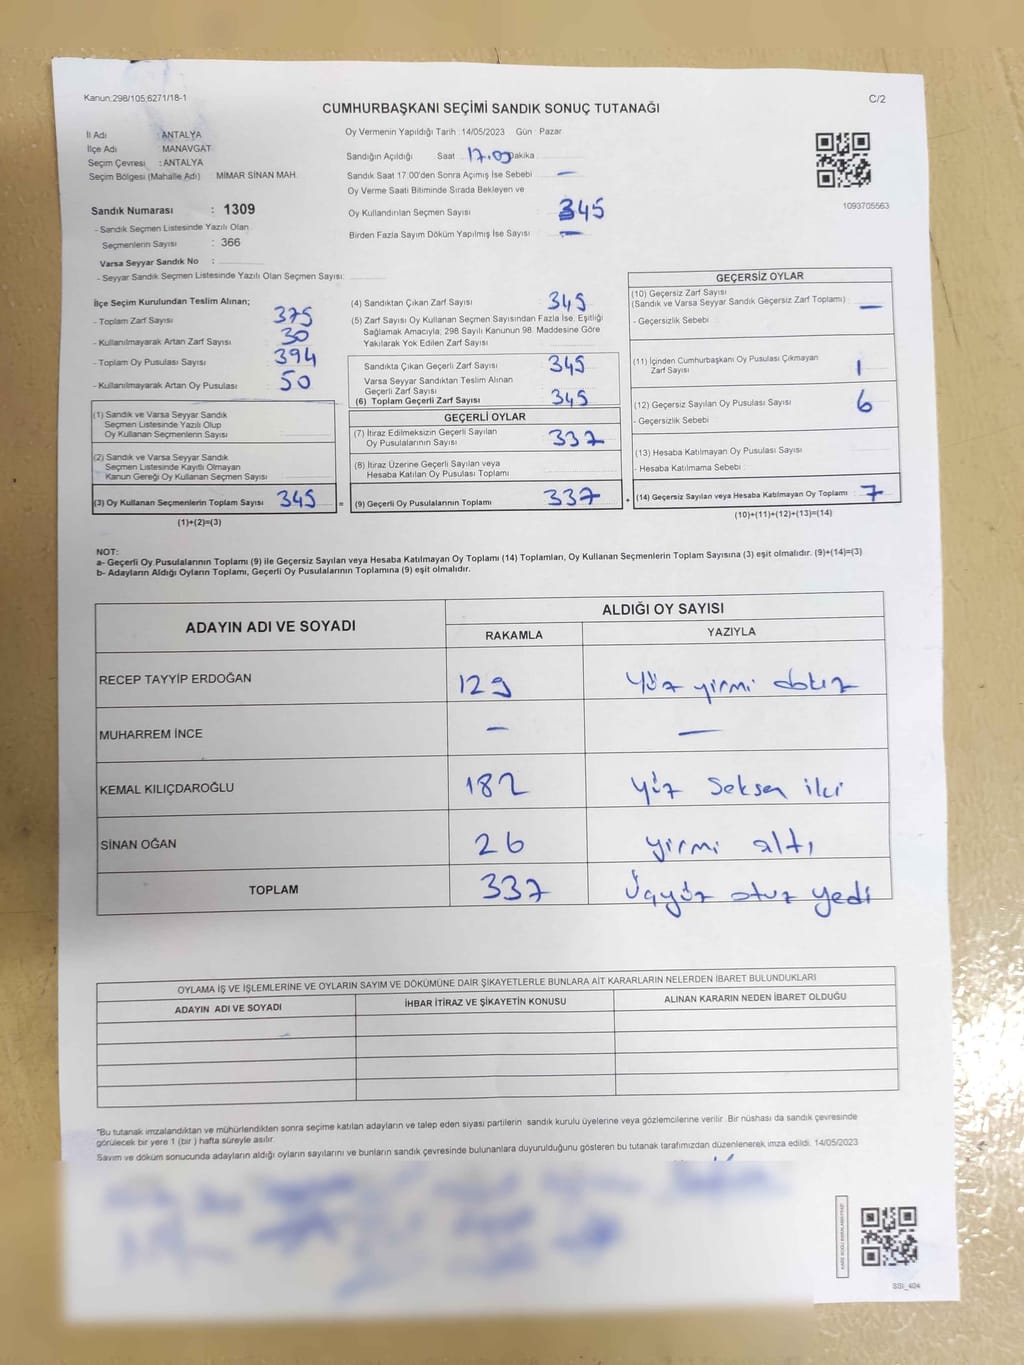 Kanun:298/105;6271/18-1
C/2
CUMHURBAŞKANI SEÇİMİ SANDIK SONUÇ TUTANAĞI
İl Adı : ANTALYA
İlçe Adı : MANAVGAT
Seçim Çevresi : ANTALYA
Seçim Bölgesi (Mahalle Adı) MİMAR SİNAN MAH.
Sandık Numarası : 1309
- Sandık Seçmen Listesinde Yazılı Olan
Seçmenlerin Sayısı : 366
Varsa Seyyar Sandık No :
- Seyyar Sandık Seçmen Listesinde Yazılı Olan Seçmen Sayısı:
Oy Vermenin Yapıldığı Tarih : 14/05/2023 Gün : Pazar
Sandığın Açıldığı Saat 17.00 Dakika :
Sandık Saat 17:00'den Sonra Açımış İse Sebebi –
Oy Verme Saati Bitiminde Sırada Bekleyen ve
Oy Kullandırılan Seçmen Sayısı : 345
Birden Fazla Sayım Döküm Yapılmış İse Sayısı : –
1093705563
İlçe Seçim Kurulundan Teslim Alınan;
- Toplam Zarf Sayısı : 375
- Kullanılmayarak Artan Zarf Sayısı : 30
- Toplam Oy Pusulası Sayısı : 394
- Kullanılmayarak Artan Oy Pusulası : 50
(1) Sandık ve Varsa Seyyar Sandık
Seçmen Listesinde Yazılı Olup
Oy Kullanan Seçmenlerin Sayısı :
(2) Sandık ve Varsa Seyyar Sandık
Seçmen Listesinde Kayıtlı Olmayan
Kanun Gereği Oy Kullanan Seçmen Sayısı :
(3) Oy Kullanan Seçmenlerin Toplam Sayısı : 345 =
(1)+(2)=(3)
(4) Sandıktan Çıkan Zarf Sayısı : 345
(5) Zarf Sayısı Oy Kullanan Seçmen Sayısından Fazla İse, Eşitliği
Sağlamak Amacıyla; 298 Sayılı Kanunun 98. Maddesine Göre
Yakılarak Yok Edilen Zarf Sayısı :
Sandıkta Çıkan Geçerli Zarf Sayısı : 345
Varsa Seyyar Sandıktan Teslim Alınan
Geçerli Zarf Sayısı :
(6) Toplam Geçerli Zarf Sayısı : 345
GEÇERLİ OYLAR
(7) İtiraz Edilmeksizin Geçerli Sayılan
Oy Pusulalarının Sayısı : 337
(8) İtiraz Üzerine Geçerli Sayılan veya
Hesaba Katılan Oy Pusulası Toplamı :
(9) Geçerli Oy Pusulalarının Toplamı : 337 +
GEÇERSİZ OYLAR
(10) Geçersiz Zarf Sayısı
(Sandık ve Varsa Seyyar Sandık Geçersiz Zarf Toplamı) : –
- Geçersizlik Sebebi :
(11) İçinden Cumhurbaşkanı Oy Pusulası Çıkmayan
Zarf Sayısı : 1
(12) Geçersiz Sayılan Oy Pusulası Sayısı : 6
- Geçersizlik Sebebi :
(13) Hesaba Katılmayan Oy Pusulası Sayısı :
- Hesaba Katılmama Sebebi :
(14) Geçersiz Sayılan veya Hesaba Katılmayan Oy Toplamı : 7
(10)+(11)+(12)+(13)=(14)
NOT:
a- Geçerli Oy Pusulalarının Toplamı (9) ile Geçersiz Sayılan veya Hesaba Katılmayan Oy Toplamı (14) Toplamları, Oy Kullanan Seçmenlerin Toplam Sayısına (3) eşit olmalıdır. (9)+(14)=(3)
b- Adayların Aldığı Oyların Toplamı, Geçerli Oy Pusulalarının Toplamına (9) eşit olmalıdır.
ADAYIN ADI VE SOYADI ALDIĞI OY SAYISI
RAKAMLA YAZIYLA
RECEP TAYYİP ERDOĞAN 129 Yüz yirmi dokuz
MUHARREM İNCE – –
KEMAL KILIÇDAROĞLU 182 yüz seksen iki
SİNAN OĞAN 26 yirmi altı
TOPLAM 337 Üçyüz otuz yedi
OYLAMA İŞ VE İŞLEMLERİNE VE OYLARIN SAYIM VE DÖKÜMÜNE DAİR ŞİKAYETLERLE BUNLARA AİT KARARLARIN NELERDEN İBARET BULUNDUKLARI
ADAYIN ADI VE SOYADI İHBAR İTİRAZ VE ŞİKAYETİN KONUSU ALINAN KARARIN NEDEN İBARET OLDUĞU
*Bu tutanak imzalandıktan ve mühürlendikten sonra seçime katılan adayların ve talep eden siyasi partilerin sandık kurulu üyelerine veya gözlemcilerine verilir. Bir nüshası da sandık çevresinde
görülecek bir yere 1 (bir ) hafta süreyle asılır.
Sayım ve döküm sonucunda adayların aldığı oyların sayılarını ve bunların sandık çevresinde bulunanlara duyurulduğunu gösteren bu tutanak tarafımızdan düzenlenerek imza edildi. 14/05/2023
SSI_404